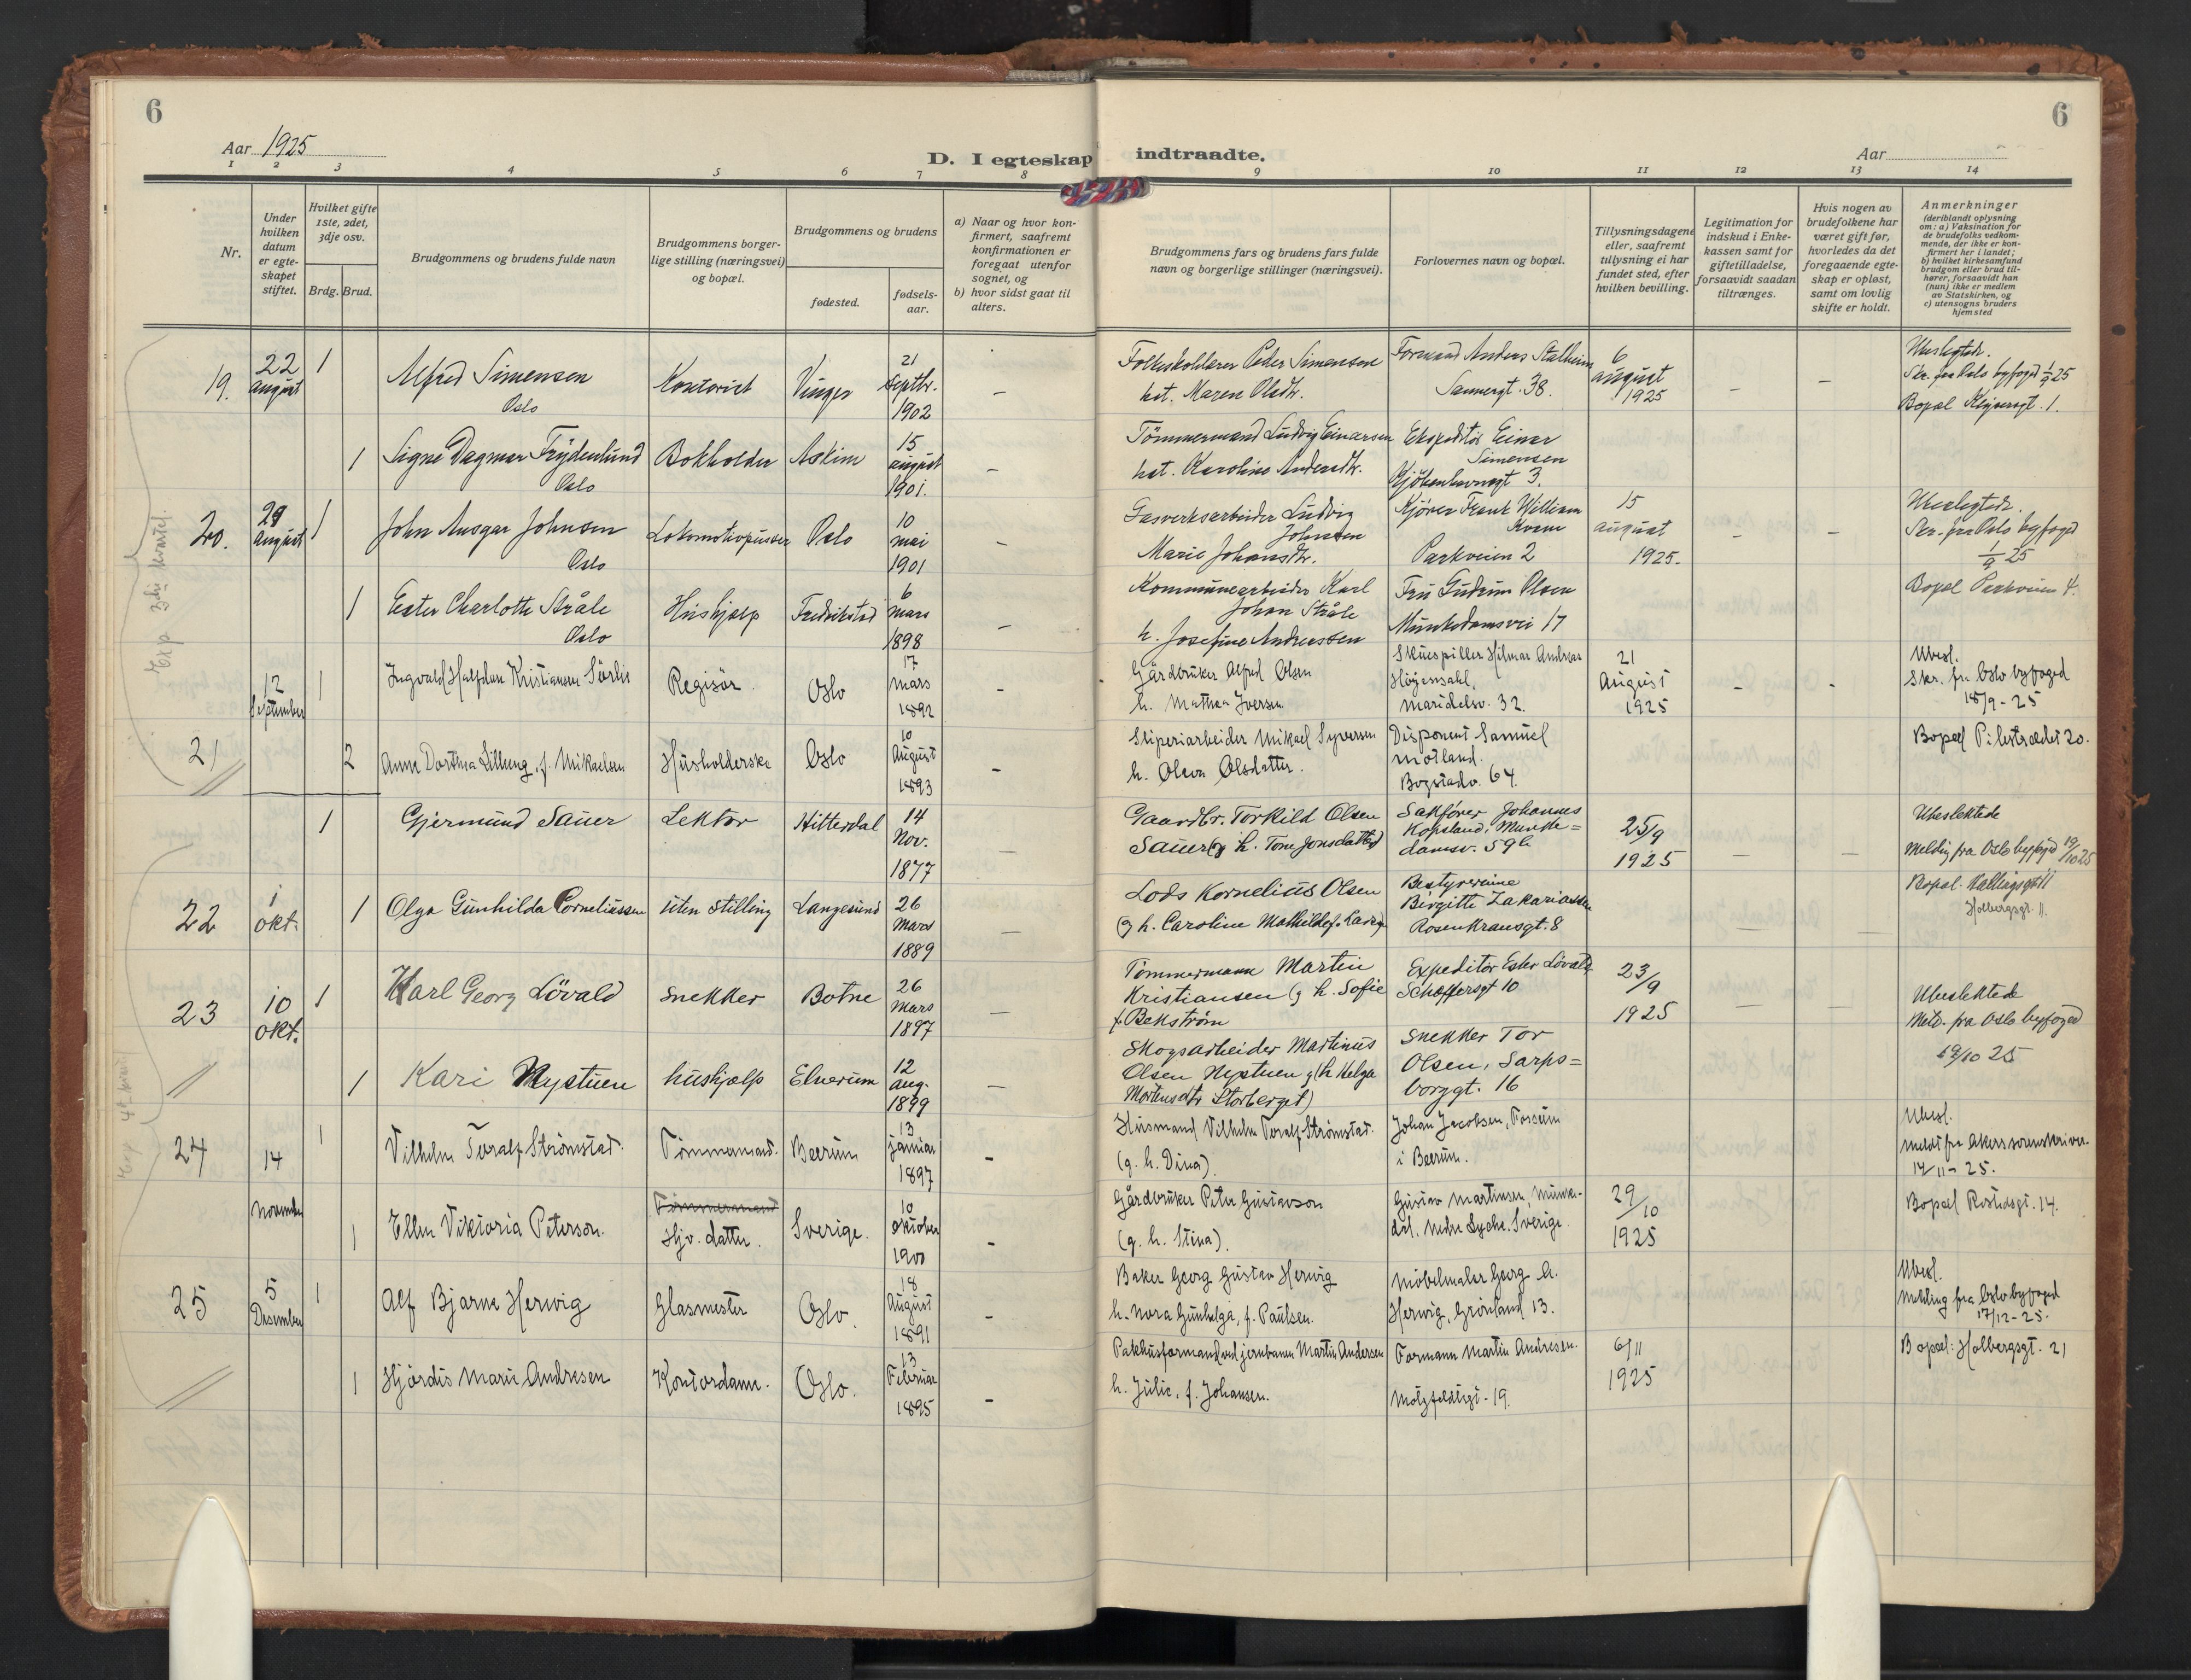 6
6
Aar 1925
D. I egteskap indtraadte.
Aar
1 2 3 4 5 6 7 8 9 10 11 12 13 14
Nr.
Under
hvilken
datum
er egte-
skapet
stiftet.
Hvilket gifte
1ste, 2det,
3dje osv.
Brdg.
Brud.
Brudgommens og brudens fulde navn
Brudgommens borger-
lige stilling (næringsvei)
og bopæl.
Brudgommens og brudens
fødested.
fødsels-
aar.
a) Naar og hvor kon-
firmert, saafremt
konfirmationen er
foregaat utenfor
sognet, og
b) hvor sidst gaat til
alters.
Brudgommens fars og brudens fars fulde
navn og borgerlige stillinger (næringsvei).
Forlovernes navn og bopæl.
Tillysningsdagene
eller, saafremt
tillysning ei har
fundet sted, efter
hvilken bevilling.
Legitimation for
indskud i Enke-
kassen samt for
giftetilladelse,
forsaavidt saadan
tiltrænges.
Hvis nogen av
brudefolkene har
været gift før,
hvorledes da det
foregaaende egte-
skap er opløst,
samt om lovlig
skifte er holdt.
Anmerkninger
(deriblandt oplysning
om: a) Vaksination for
de brudefolks vedkom-
mende, der ikke er kon-
firmert her i landet;
b) hvilket kirkesamfund
brudgom eller brud til-
hører, forsaavidt han
(hun) ikke er medlem
av Statskirken, og
c) utensogns bruders
hjemsted
19.
22
august
1
Alfred Simensen
Oslo
Kontorist
Vinger
21
septbr.
1902
–
Folkeskolelærer Peder Simensen
hst. Maren Olsdtr.
Formand Anders Stalheim
Sannergt. 38.
6
august
1925
–
–
Ubeslegtede.
Skr. fra Oslo byfoged 1/9 25
Bopæl Keysersgt. 1.
1
Signe Dagmar Frydenlund
Oslo
Bokholder
Askim
15
august
1901.
–
Tömmermand Ludvig Einarsen
hst. Karoline Andersdtr.
Ekspeditör Einar
Simensen
Kjöbenhavnsgt 3.
20.
29
august
1
John Ansgar Johnsen
Oslo
Lokomotivpusser
Oslo
10
mai
1901
–
Gasverksarbeider Ludvig
Johnsen
Marie Johansdtr.
Kjörer Frank William
Kvam
Parkveien 2
15
august
1925.
–
–
Ubeslegtede.
Skr. fra Oslo byfoged
1/9 25
Bopæl Parkveien 4.
1
Ester Charlotte Stråle
Oslo
Hushjælp
Fredrikstad
6
mars
1898
–
Kommunearbeider Karl
Johan Stråle
h. Josefine Andreassen
Fru Gudrun Olsen
Munkedamsvei 17
Exp 3die kvartal.
21
//
12
September
1
Ingvald Halfdan Kristiansen Sörlie
Regisör
Oslo
17
mars
1892
–
Gårdbruker Alfred Olsen
h. Mathea Iversen
Skuespiller Hilmar Andreas
Höjensahl,
Maridalsv. 32.
21
August
1925
–
-
Ubesl.
Skr. fra Oslo byfoged
18/9 - 25
Bopæl Pilestrædet 20.
2
Anna Dorthea Lilleeng, f. Mikaelsen
Husholderske
Oslo
10
August
1893
–
Sliperiarbeider Mikael Syversen
h. Oleva Olsdatter.
Disponent Samuel
Motland.
Bogstadv. 64.
22
1
okt.
1
Gjermund Sauer
Lektor
Hitterdal
14
Nov.
1877
–
Gaardbr. Torkild Olsen
Sauer (g h. Tone Jonsdatter)
Sakfører Johannes
Kopsland, Munke=
damsv. 59b
25/9
1925
–
–
Ubeslektede
Melding fra Oslo byfoged 19/10 25
Bopæl. Hallingsgt 11
Holbergsgt. 11.
1
Olga Gunhilda Corneliussen
uten stilling
Langesund
26
Mars
1889
–
Lods Kornelius Olsen
(g h. Caroline Mathilde f. Larsen
Bestyrerinne
Birgitte Zakariassen
Rosenkransgt. 8
–
–
23
//
10
okt.
1
Karl Georg Lövald
snekker
Botne
26
Mars
1897
–
Tømmermann Martin
Kristiansen (g h. Sofie
f. Bekstrøm
Expeditör Ester Lövald,
Schæffersgt 10
23/9
1925
Ubeslektede
Meld. fra Oslo byfoged
19/10 25
1
Kari Nystuen
hushjælp
Elverum
12
aug.
1899
–
Skogsarbeider Martinus
Olsen Nystuen g (h Helga
Mortensdtr Storberget)
Snekker Tor
Olsen, Sarps=
borggt. 16
Exp 4de kvartal
24
14
november
1
Vilhelm Toralf Strömstad.
Tömmermand.
Bærum
13
januar
1897
–
Husmand Vilhelm Toralf Strömstad.
(g. h. Dina).
Johan Jacobsen, Fossum
i Bærum.
29/10
1925
Ubesl.
meldt fra Akers sorenskriver
14/11 - 25.
Bopæl Rostedsgt. 14.
1
Ellen Viktoria Peterson.
Tömmermand
Hjv. datter.
Sverige.
10
oktober
1900
–
Gårdbruker Peter Gustavson
(g. h. Stina).
Gustav Martinsen, Munke-
dal. Nedre Lycke. Sverige.
25
//
5
Desember
1
Alf Bjarne Herwig
Glasmester
Oslo.
18
August
1891
–
Baker Georg Gustav Herwig
h. Nora Gunhelga, f. Paulsen.
Möbelmaler Georg A.
Herwig, Grönland 13.
6/11
1925
Ubesl.
Melding fra Oslo byfoged
17/12 - 25.
Bopæl: Holbergsgt. 21
1
Hjördis Marie Andresen
Kontordame.
Oslo.
13
Februar
1895
–
Pakhusformand ved jernbanen Martin Andersen
h. Julie, f. Johansen.
Formann Martin Andresen.